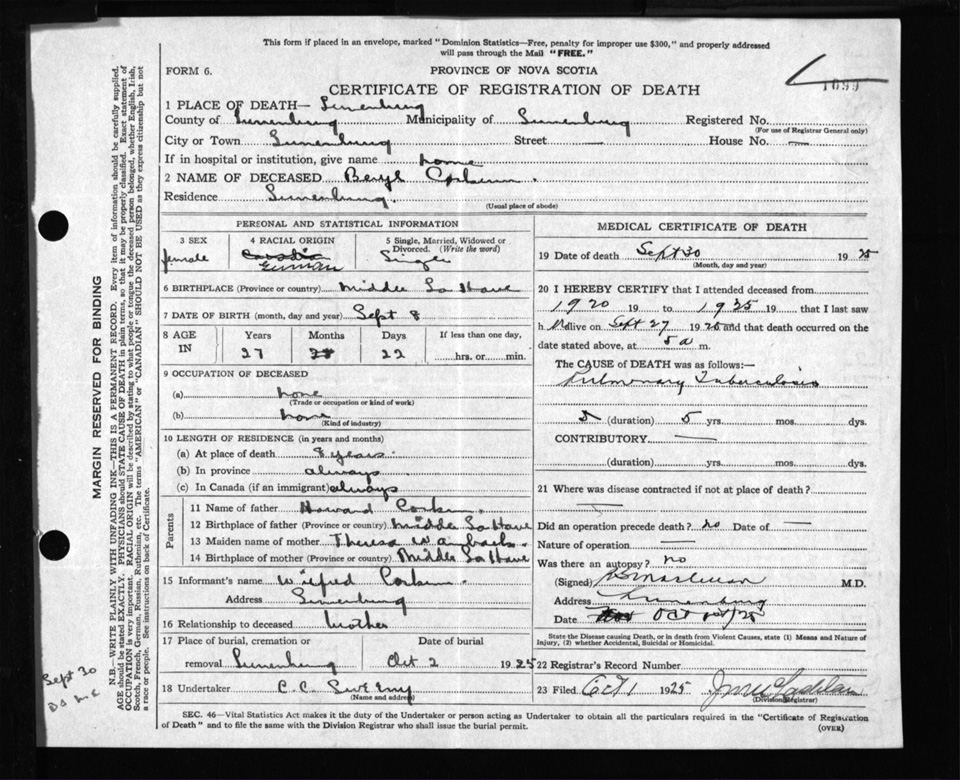 This form if placed in an envelope, marked "Dominion Statistics—Free, penalty for improper use $300," and properly addressed
will pass through the Mail "FREE."
FORM 6.
PROVINCE OF NOVA SCOTIA
1099
CERTIFICATE OF REGISTRATION OF DEATH
1 PLACE OF DEATH— Lunenburg
County of Lunenburg Municipality of Lunenburg Registered No.
(For use of Registrar General only)
City or Town Lunenburg Street — House No. —
If in hospital or institution, give name home
2 NAME OF DECEASED Beryl Corkum.
Residence Lunenburg.
(Usual place of abode)
PERSONAL AND STATISTICAL INFORMATION
3 SEX 4 RACIAL ORIGIN 5 Single, Married, Widowed or
Divorced. (Write the word)
female German Single
6 BIRTHPLACE (Province or country) Middle LaHave
7 DATE OF BIRTH (month, day and year) Sept 8
8 AGE IN Years Months Days If less than one day,
27 22 hrs. or min.
9 OCCUPATION OF DECEASED
(a) none
(Trade or occupation or kind of work)
(b) none
(Kind of industry)
10 LENGTH OF RESIDENCE (in years and months)
(a) At place of death 8 years.
(b) In province always
(c) In Canada (if an immigrant) always
Parents
11 Name of father Howard Corkum.
12 Birthplace of father (Province or country) Middle LaHave
13 Maiden name of mother Theresa
14 Birthplace of mother (Province or country) Middle LaHave
15 Informant's name Wilfred Corkum.
Address Lunenburg
16 Relationship to deceased brother
17 Place of burial, cremation or Date of burial
removal Lunenburg Oct 2 1925
18 Undertaker C.C. Sweeny
(Name and address)
MEDICAL CERTIFICATE OF DEATH
19 Date of death Sept 30 1925
(Month, day and year)
20 I HEREBY CERTIFY that I attended deceased from
1920 19 to 1925 19 that I last saw
h er alive on Sept 27 1925 and that death occurred on
date stated above, at 5 a m.
The CAUSE OF DEATH was as follows:—
Pulmonary Tuberculosis
5 (duration) 5 yrs. mos. dys.
CONTRIBUTORY. —
(duration) yrs. mos. dys.
21 Where was disease contracted if not at place of death?
—
Did an operation precede death? no Date of —
Nature of operation —
Was there an autopsy? no
(Signed) M.D.
Address Lunenburg
Date Oct 1st/25
State the Disease causing Death, or in death from Violent Causes, state (1) Means and Nature of
Injury, (2) whether Accidental, Suicidal or Homicidal.
22 Registrar's Record Number
23 Filed Oct 1 1925
(Division Registrar)
SEC. 46—Vital Statistics Act makes it the duty of the Undertaker or person acting as Undertaker to obtain all the particulars required in the "Certificate of Registration
of Death" and to file the same with the Division Registrar who shall issue the burial permit.
(OVER)
MARGIN RESERVED FOR BINDING
N.B.—WRITE PLAINLY WITH UNFADING INK—THIS IS A PERMANENT RECORD. Every item of information should be carefully supplied.
AGE should be stated EXACTLY. PHYSICIANS should STATE CAUSE OF DEATH in plain terms, so that it may be properly classified. Exact statement of
OCCUPATION is very important. RACIAL ORIGIN will be described by stating to what people or tongue the deceased person belonged, whether English, Irish,
Scotch, French, German, Russian, Ruthenian, etc. The terms "AMERICAN" or "CANADIAN" SHOULD NOT BE USED as they express citizenship but not
a race or people. See instructions on back of Certificate.
Sept 30